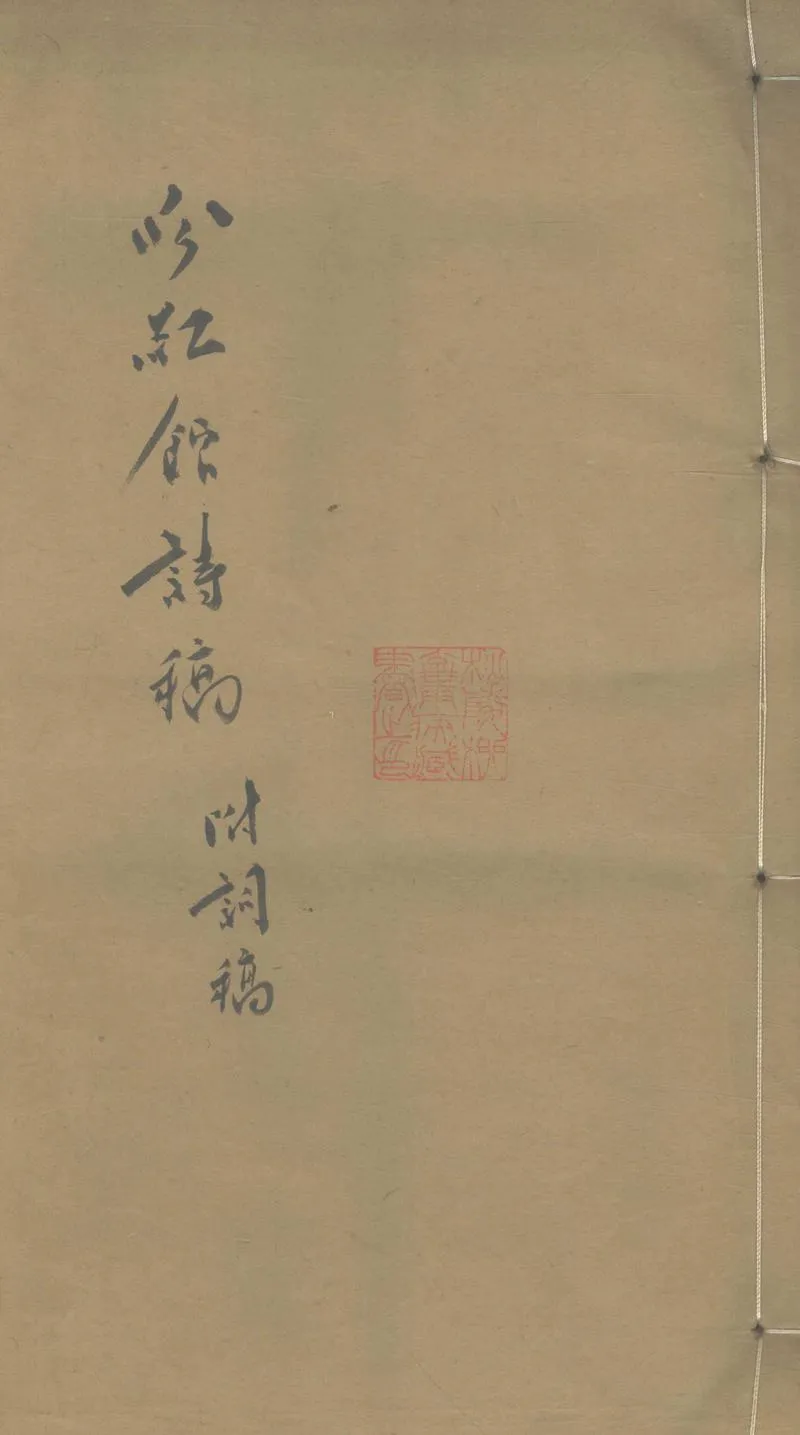 吟紅館詩稿
附詞稿